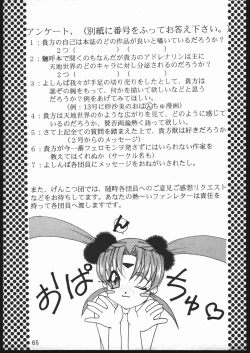 アンケート、(別紙に番号をふってお答え下さい。
1：貴方の自己は本誌のどの作品が良いと囁いているだろうか?
2つ(　　　)(　　　)
2：難呼本で聞くのもなんだが貴方のアドレナリンは主に
天地世界のどのキャラに対し分泌されるのだろうか?
2つ(　　　)(　　　)
3：よしんば我々が手足の切り売りをしたとして、貴方は
誰ぞの腕をもって、何かを描いて欲しいなどと思う
だろうか?例をあげてみてほしい。
(例：13号に砂沙美のおぱんちゅ漫画)
4：貴方は天地世界のかような広がりを見て、どのように感じて
いるのだろうか。賛否両論熱く語って欲しい。
5：さて上記全ての質問を踏まえた上で、貴方獣は好きだろうか?
(2号からのメッセージ)
6：貴方が今一番フェロモンヲ発さずにはいられない作家を
教えてはくれぬか(サークル名も)
7：よしんば各団員にメッセージをおねがいされたし。
また、げんこつ団では、随時各団員へのご意見ご感想リクエスト
などをお待ちしてます。あなたの熱〜いファンレターは責任を
持って各団員へ渡しますです。
おぱんちゅ♡
65